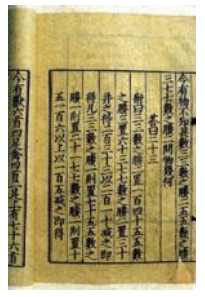 今有物不知其數三三數之賸二五五數之賸
三七七數之賸二問物幾何
答曰二十三
術曰三三數之賸二置一百四十五五數
之賸三置六十三七七數之賸二置三十
并之得二百三十三以二百一十減之即
得凡三三數之賸一則置七十五五數之
賸一則置二十一七七數之賸一則置十
五一百六以上以一百五減之即得
今有獸六首四足禽四首二足上有七十六首